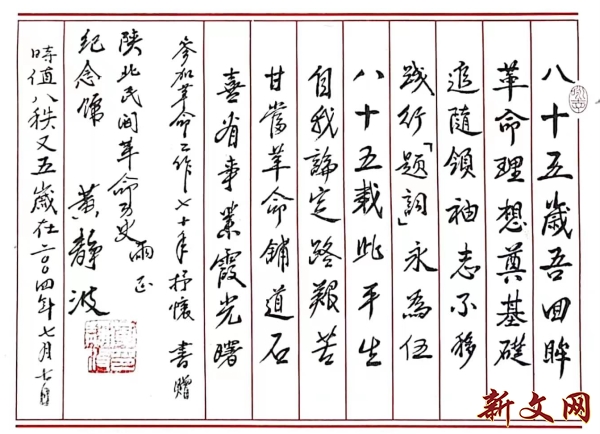 八十五歲吾回眸
革命理想奠基礎
追隨領袖志不移
践行「题詞」永為伍
八十五載此平生
自我論定路艱苦
甘當革命铺道石
喜看事業霞光曙
参加革命工作七十年抒懷 書贈
陕北民间革命历史
正
纪念馆 黄静波
時值八秩又五歲在二〇〇四年七月七日
新文网